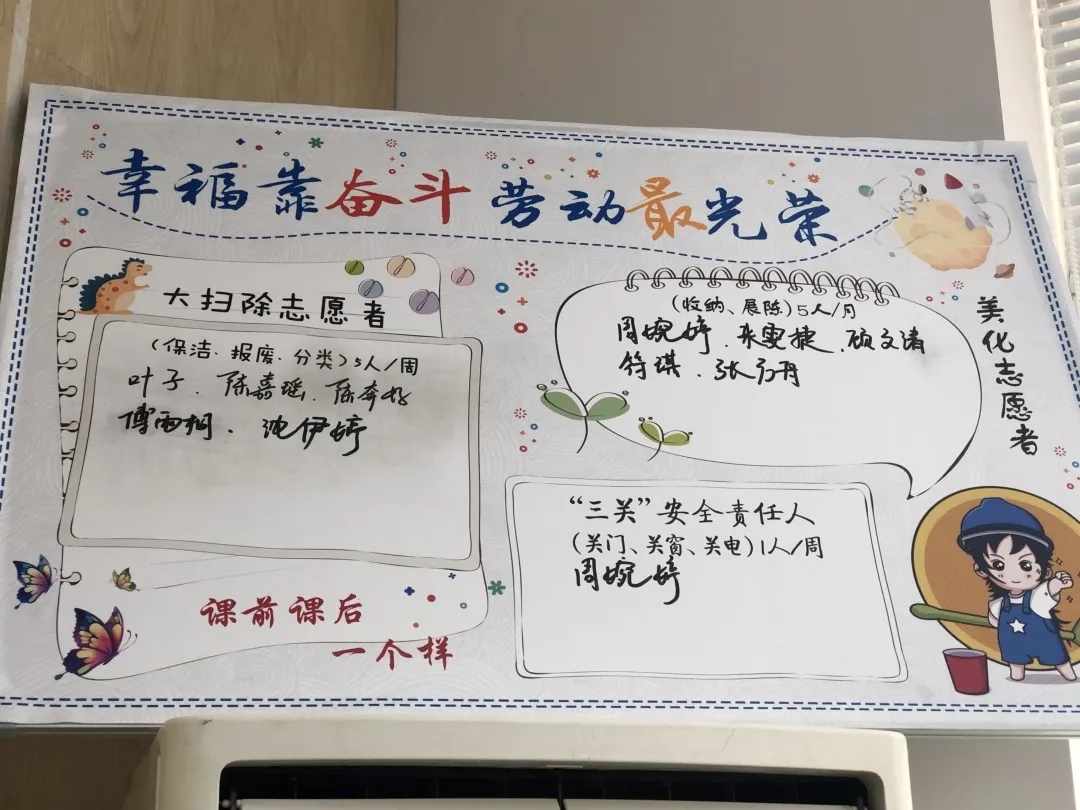 幸福靠奋斗 劳动最光荣
大扫除志愿者
(保洁、报废、分类)5人/周
叶子、陈嘉瑶、陈奔好
傅雨桐、沈伊婷
课前课后
一个样
(收纳、展陈)5人/月
周婉婷、朱雯捷、顾文清
符琪、张方丹
美化志愿者
“三关”安全责任人
(关门、关窗、关电)1人/周
周婉婷